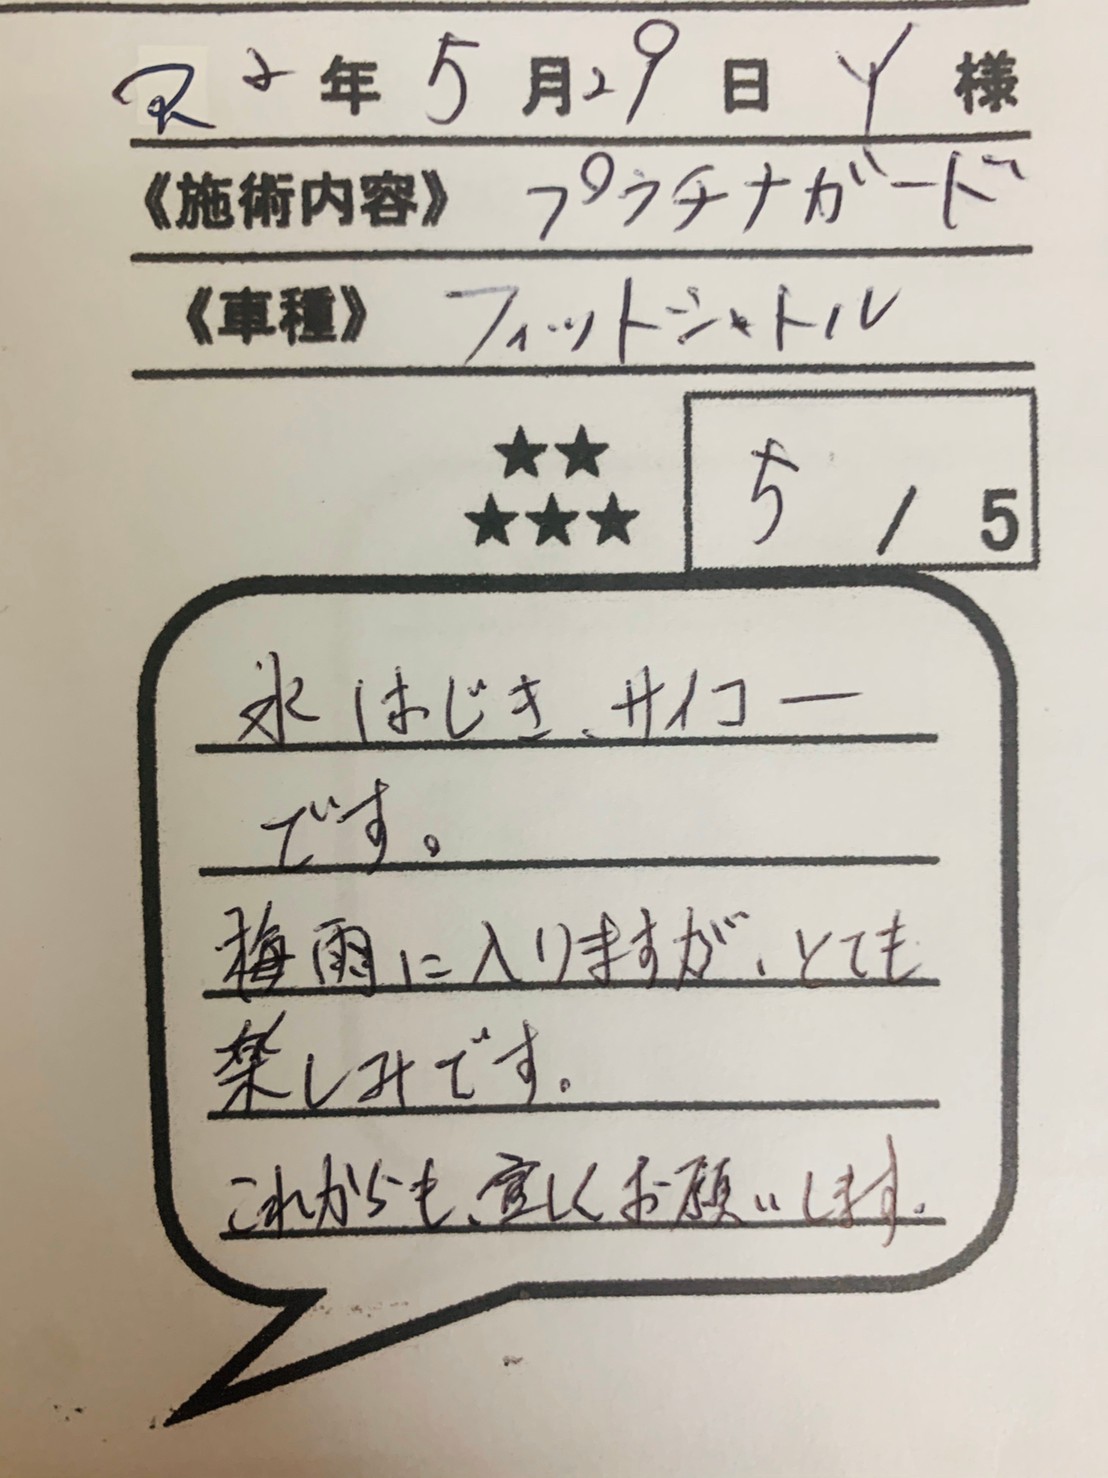 R2年5月29日 Y様
《施術内容》 プラチナガード
《車種》 フィットシャトル
★★
★★★
5/5
水はじき、サイコー
です。
梅雨に入りますが、とても
楽しみです。
これからも、宜しくお願いします。